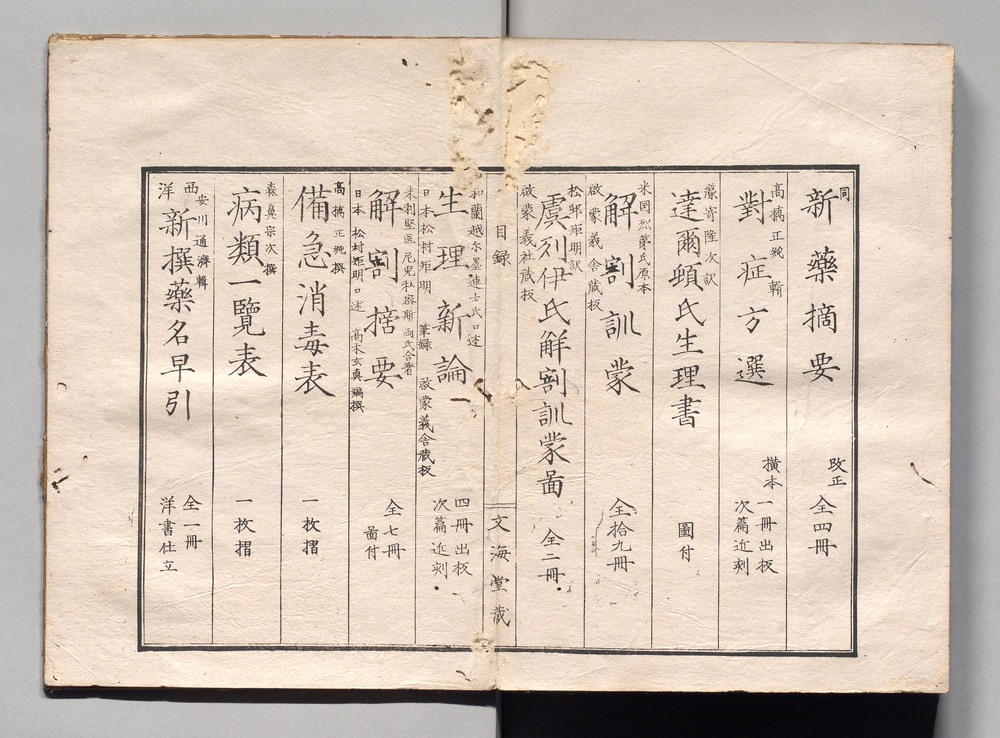 同
新藥摘要
改正 全四冊
高橋正純輯
對症方選
横本一冊出板
次篇近刻
藤寄隆次訳
達爾頓氏生理書
圖付
米国烈第氏原本
解剖訓蒙
啟蒙義舍蔵板
全拾九冊
松邨矩明訳
虞列伊氏解剖訓蒙啚
啟蒙義社蔵板
全二冊
目録
文海堂蔵
和蘭越尓蔑連士氏口述
生理新論
日本松村矩明 筆録 啟蒙義舍蔵板
四冊出板
次篇近刻
米利堅医 両氏合著
解剖摘要
日本 松村矩明口述 高木玄真編撰
全七冊
啚付
高橋正純撰
備急消毒表
一枚摺
森鼻宗次撰
病類一覽表
一枚摺
安川通濟輯
西洋新撰藥名早引
全一冊
洋書仕立